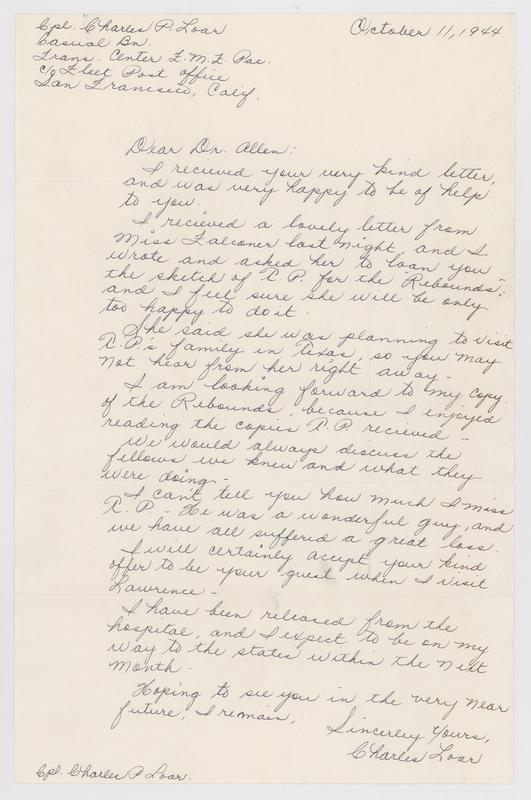 Cpl. Charles P. Loar
October 11, 1944
Casual Bn.
Trans. Center F.M.F. Pac.
c/o Fleet Post office
San Francisco, Calif.
Dear Dr. Allen:
I recieved your very kind letter,
and was very happy to be of help
to you.
I recieved a lovely letter from
Miss Falconer last night, and I
wrote and asked her to loan you
the sketch of T.P. for the Rebounds;
and I feel sure she will be only
too happy to do it.
She said she was planning to visit
T.P's family in Texas, so you may
not hear from her right away-
I am looking forward to my copy
of the Rebounds, because I enjoyed
reading the copies T.P. recieved-
We would always discuss the
fellows we knew and what they
were doing-
I can't tell you how much I miss
T.P- He was a wonderful guy, and
we have all suffered a great loss.
I will certainly accept your kind
offer to be your guest when I visit
Lawrence-
I have been released from the
hospital, and I expect to be on my
way to the states within the next
month-
Hoping to see you in the very near
future, I remain,
Sincerley Yours,
Charles Loar
Cpl. Charles P. Loar.